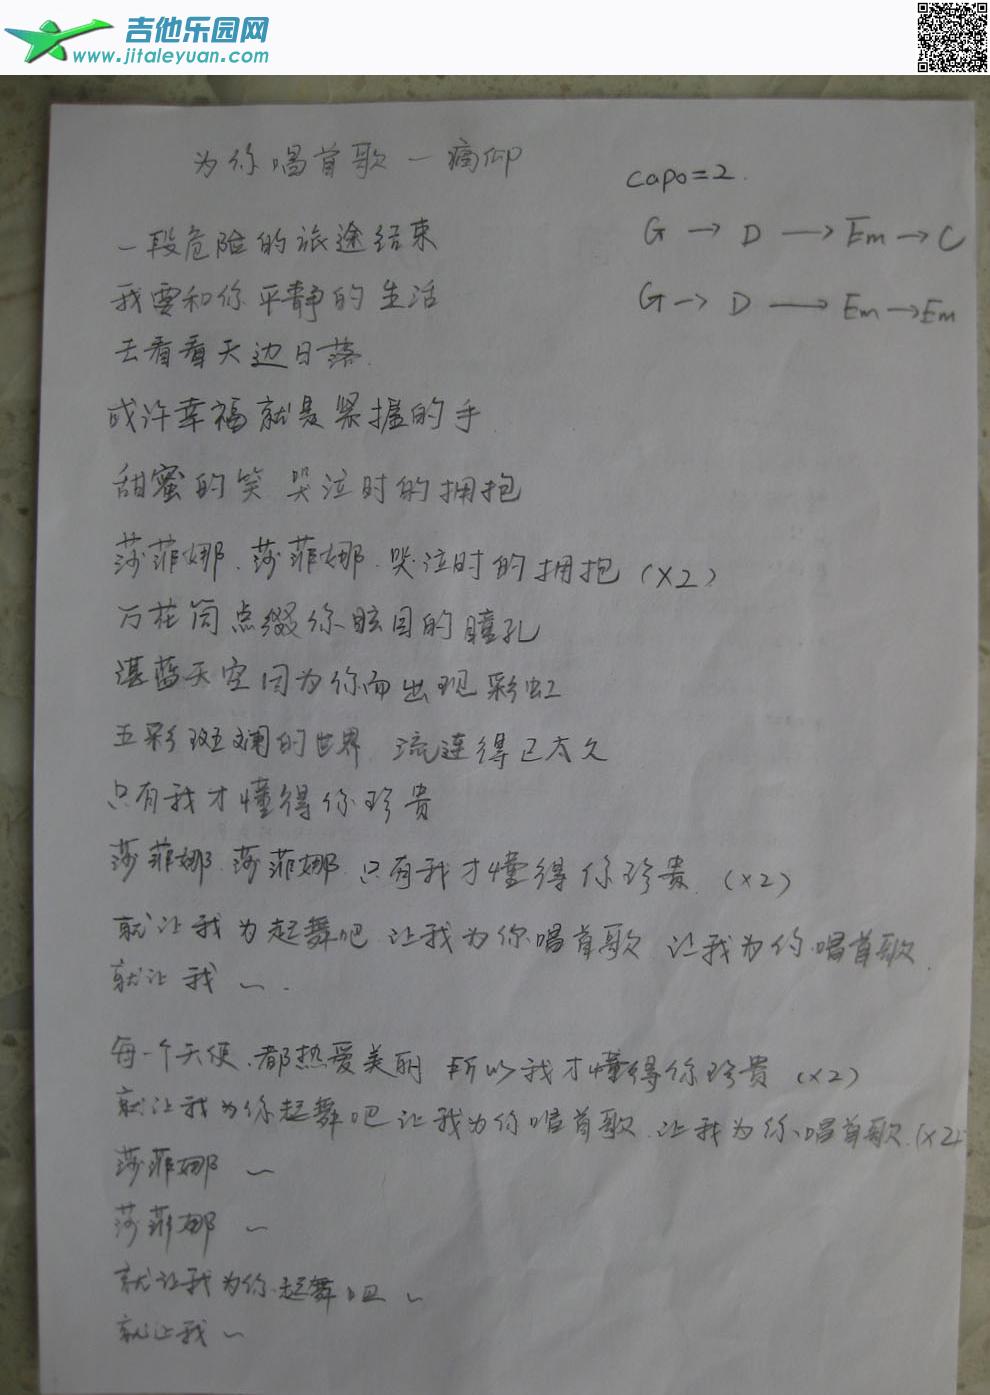 吉他乐园网
www.jitaleyuan.com
为你唱首歌 — 痛仰
capo=2.
G → D → Em → C
G → D → Em → Em
一段危险的旅途结束
我要和你平静的生活
去看看天边日落.
或许幸福就是紧握的手
甜蜜的笑 哭泣时的拥抱
莎菲娜.莎菲娜.哭泣时的拥抱 (X2)
万花筒点缀你眩目的瞳孔
湛蓝天空因为你而出现彩虹
五彩斑斓的世界 流连得已太久
只有我才懂得你珍贵
莎菲娜.莎菲娜.只有我才懂得你珍贵.(X2)
就让我为起舞吧 让我为你唱首歌 让我为你唱首歌.
就让我 ~.
每一个天使.都热爱美丽 所以我才懂得你珍贵 (X2)
就让我为你起舞吧 让我为你唱首歌.让我为你唱首歌.(X2)
莎菲娜 ~
莎菲娜 ~
就让我为你起舞吧 ~
就让我 ~